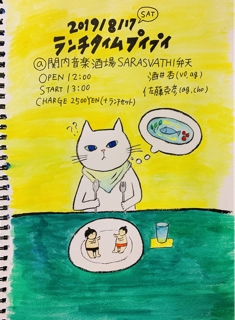 2019/8/17 SAT
ランチタイムプイプイ
@関内音楽酒場SARASVATHI弁天
OPEN 12:00
START 13:00
CHARGE 2500YEN(+ランチセット)
酒井君(vo,ag,)
佐藤克彦(ag,cho)
??